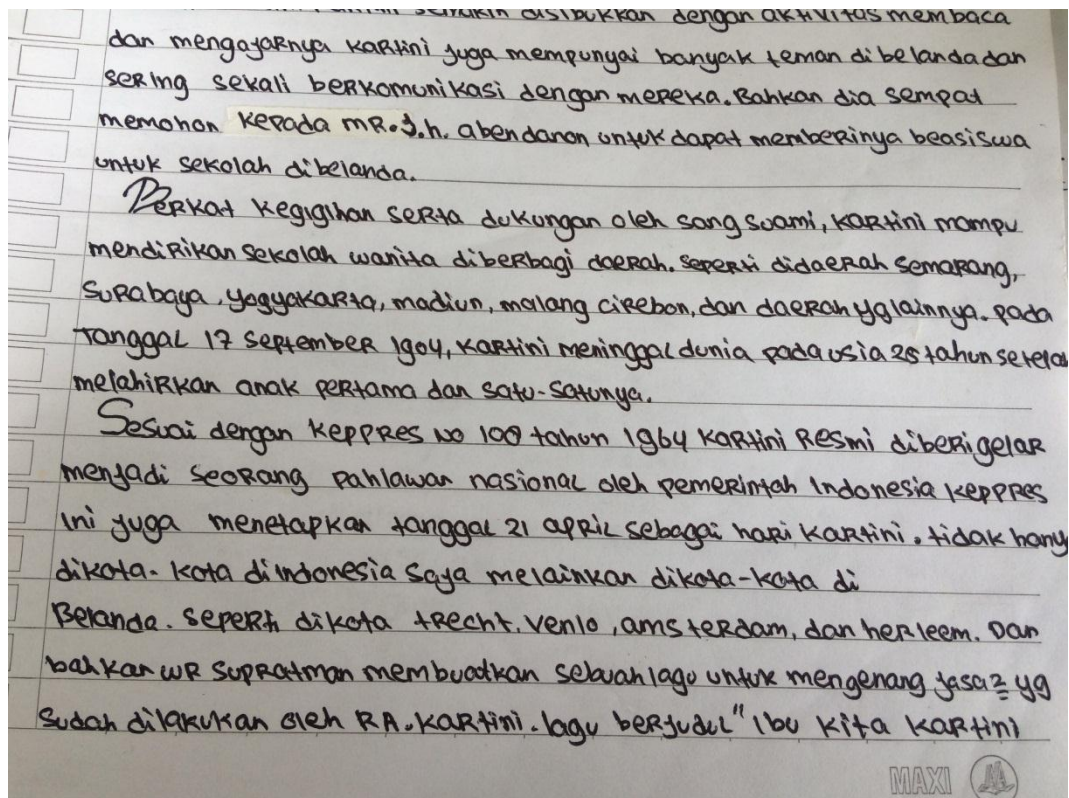 semakin disibukkan dengan aktivitas membaca
dan mengajarnya kartini juga mempunyai banyak teman di belanda dan
sering sekali berkomunikasi dengan mereka. Bahkan dia sempat
memohon kepada MR.J.h. abendanon untuk dapat memberinya beasiswa
untuk sekolah dibelanda.
Berkat kegigihan serta dukungan oleh sang suami, kartini mampu
mendirikan sekolah wanita diberbagi daerah. seperti didaerah semarang,
surabaya, yogyakarta, madiun, malang cirebon, dan daerah yg lainnya. pada
Tanggal 17 september 1904, kartini meninggal dunia pada usia 25 tahun setela
melahirkan anak pertama dan satu-satunya.
Sesuai dengan keppres no 108 tahun 1964 kartini resmi diberi gelar
menjadi seorang pahlawan nasional oleh pemerintah Indonesia keppres
ini juga menetapkan tanggal 21 april sebagai hari kartini. tidak hany
dikota-kota di indonesia saja melainkan dikota-kota di
Belanda. seperti dikota trecht. venlo, amsterdam, dan herleem. Dan
bahkan WR supratman membuatkan sebuah lagu untuk mengenang jasa2 yg
sudah dilakukan oleh RA. kartini. lagu berjudul "Ibu kita kartini
MAXI